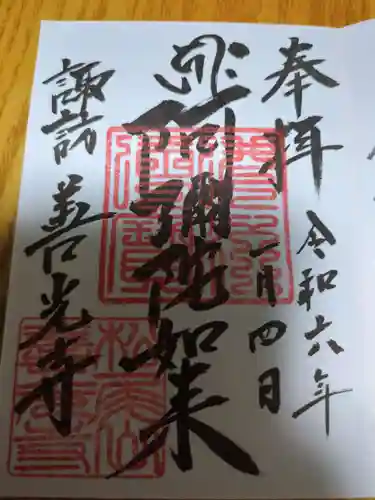 奉拝
令和六年
一月四日
阿彌陀如来
諏訪 善光寺